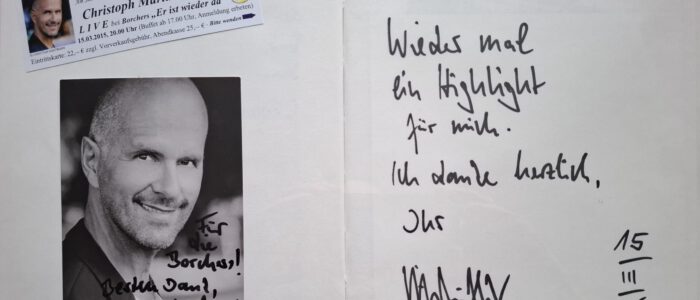 Christoph
LIVE bei Borchers „Er ist wieder da
15.03.2015, 20.00 Uhr (Buffet ab 17.00 Uhr, Anmeldung erbeten)
Eintrittskarte: 22,– € zzgl. Vorverkaufsgebühr, Abendkasse 25,– € - Bitte wenden
Für
die
Borchers!
Besten Dank,
Wieder mal
ein Highlight
für mich.
Ich danke herzlich,
Ihr
15
III